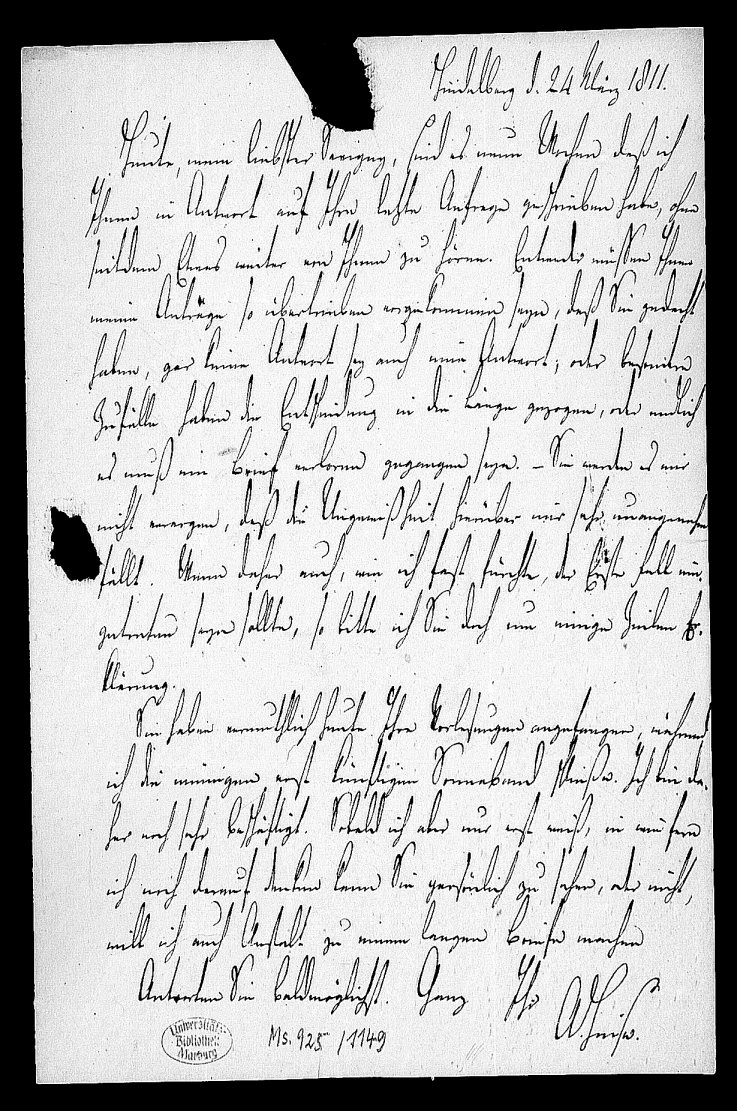 Heidelberg d. 24 März 1811.
Heute, mein liebster Savigny, sind es neun Wochen daß ich
Ihnen in Antwort auf Ihre letzte Anfrage geschrieben habe, ohne
seitdem Etwas weiter von Ihnen zu hören. Entweder müssen Ihnen
meine Anträge so übertrieben vorgekommen seyn, daß Sie gedacht
haben, gar keine Antwort sey auch eine Antwort; oder besondere
Zufälle haben die Entscheidung in die Länge gezogen, oder endlich
es muß ein Brief verloren gegangen seyn. – Sie werden es mir
nicht verargen, daß die Ungewißheit hierüber mir sehr unangenehm
fällt. Wenn daher auch, wie ich fast fürchte, der Erste Fall ein-
getreten seyn sollte, so bitte ich Sie doch um einige Zeilen Er-
klärung.
Sie haben vermuthlich heute Ihre Vorlesungen angefangen, während
ich die meinigen erst künftigen Sonnabend schließe. Ich bin da-
her noch sehr beschäftigt. Sobald ich aber nur erst weiß, in wie fern
ich noch darauf denken kann Sie persönlich zu sehen, oder nicht,
will ich auch Anstalt zu einem langen Briefe machen
Antworten Sie baldmöglichst. Ganz Ihr
A. Heise.
Universitäts-
Bibliothek
Marburg
Ms. 925 / 1149